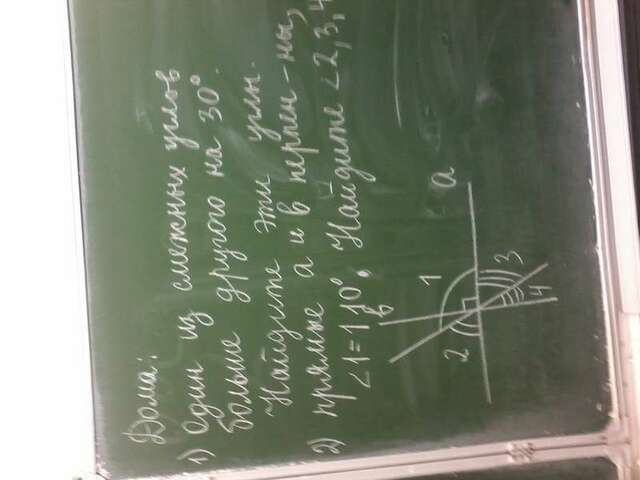 Дома:
1) один из смежных углов
больше другого на 30°.
Найдите эти углы.
2) прямые а и в перпен-ны,
∠1=110°. Найдите ∠2,3,4
в
1
а
2
3
4